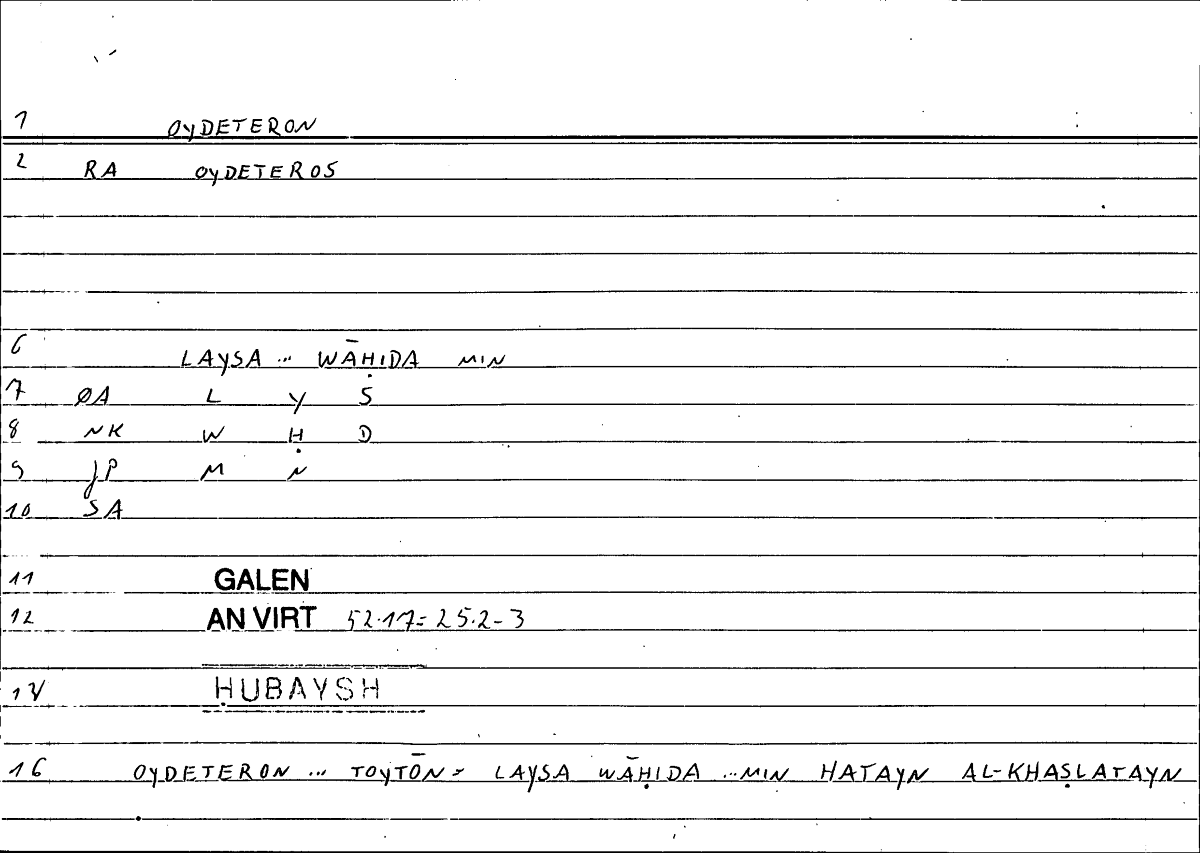 1 OyDETERON
2 RA OyDETEROS
6 LAYSA ... WĀḤIDA MIN
7 ØA L Y S
8 NK W Ḥ D
9 JP M N
10 SA
11 GALEN
12 AN VIRT 52.17=25.2-3
13 ḤUBAYSH
16 OYDETERON ... TOYTŌN = LAYSA WĀḤIDA ... MIN HATAYN AL-KHAṢLATAYN